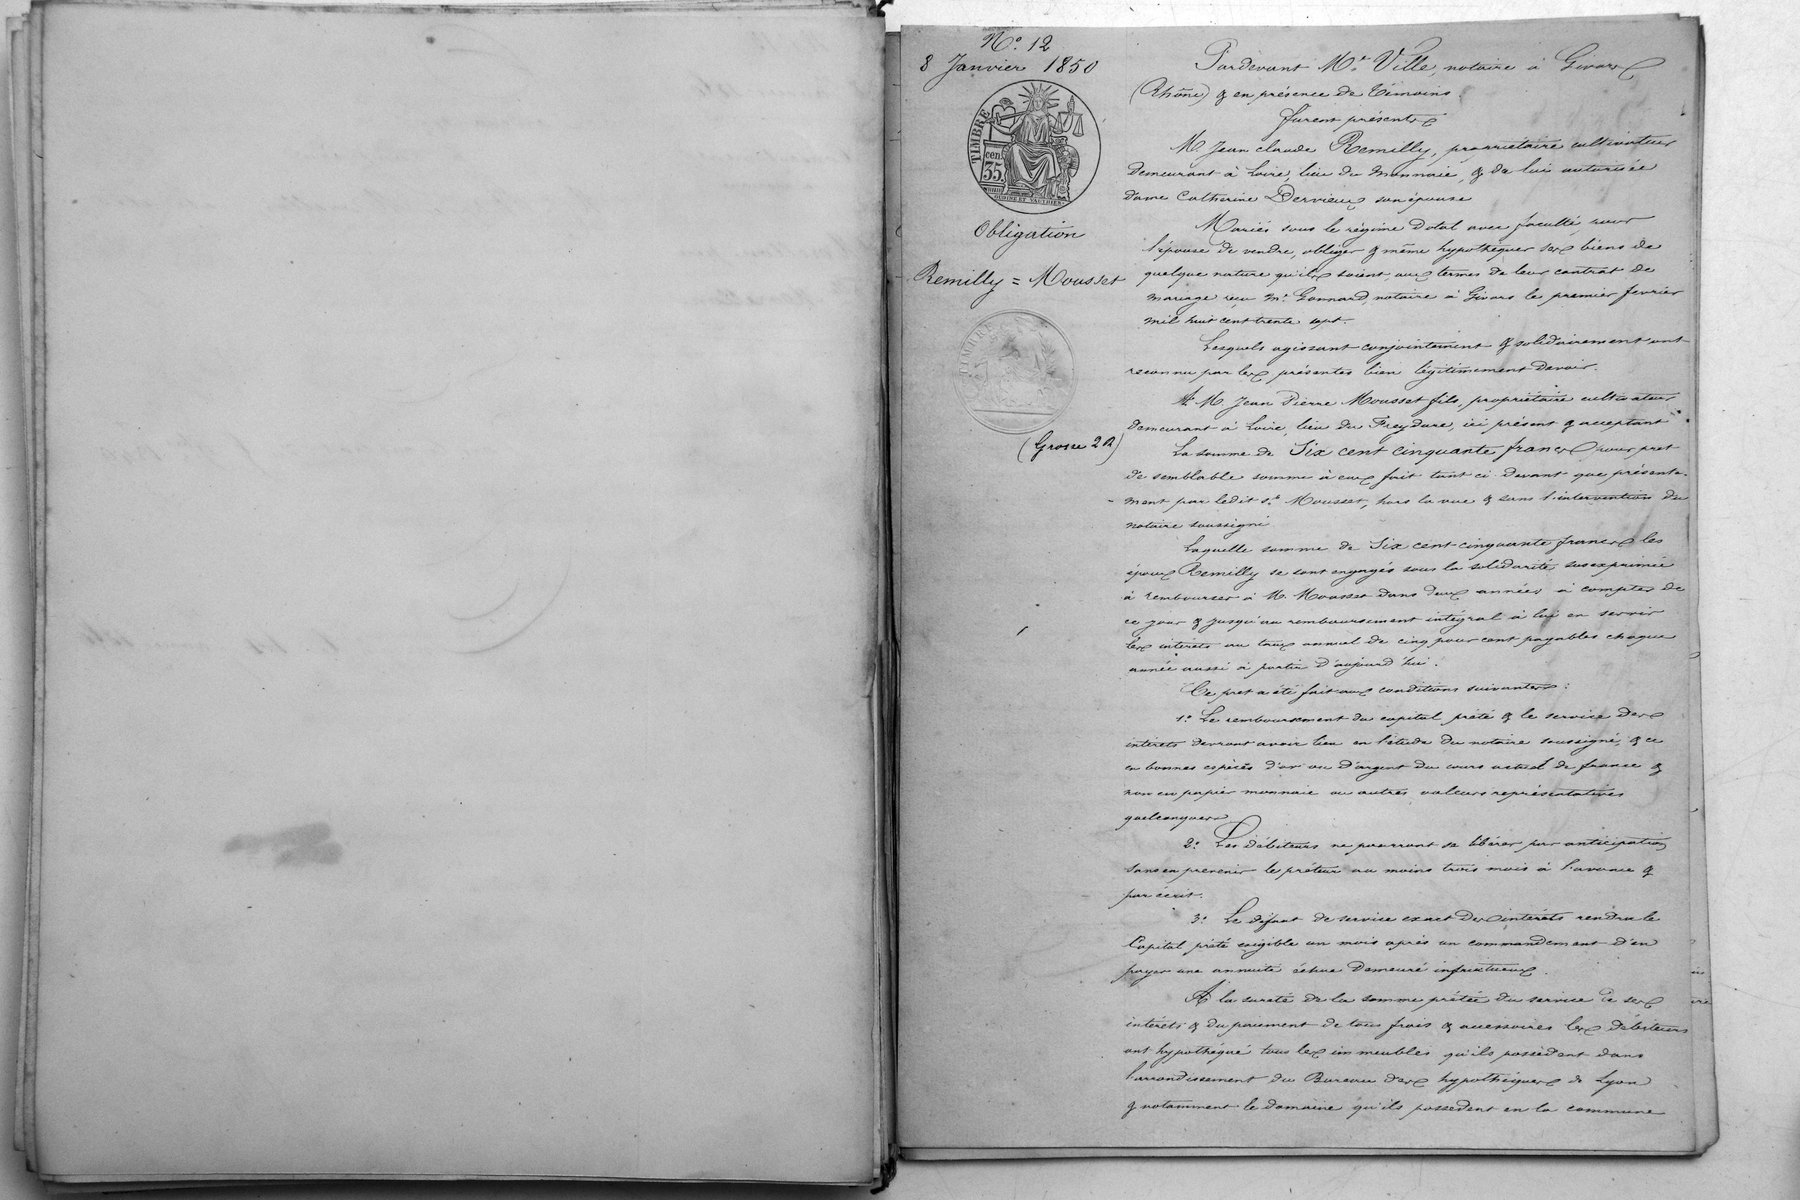 N.° 12
8 Janvier 1850
TIMBRE
cen.
35.
Obligation
Remilly = Mousset
TIMBRE
(Grosse 2 R)
Pardevant M.e Ville, notaire à Givors
(Rhône) & en présence de temoins.
furent présents
M. Jean claude Remilly, propriétaire cultivateur
demeurant à Loire, lieu du monnaie, & de lui autorisée
dame Catherine Dervieux son épouse
Mariés sous le régime dotal avec faculté pour
l'épouse de vendre, obliger & même hypothéquer ses biens de
quelque nature qu'ils soient aux termes de leur contrat de
mariage reçu m.e Gonnard, notaire à Givors le premier fevrier
mil huit cent trente sept.
Lesquels agissant conjointement & solidairement ont
reconnu par les présentes bien légitimement devoir.
M. Jean Pierre Mousset fils, propriétaire cultivateur
demeurant à Loire, lieu du Freydure, ici présent & acceptant
La somme de Six cent cinquante francs pour pret
de semblable somme à eux fait tant ci devant que présente-
ment par ledit s.r Mousset, hors la vue & sans l'intervention du
notaire soussigné
Laquelle somme de Six cent cinquante francs les
époux Remilly se sont engagés sous la solidarité susexprimée
à rembourser à M. Mousset dans deux années à compter de
ce jour & jusqu'au remboursement intégral à lui en servir
les intérêts au taux annuel de cinq pour cent payables chaque
année aussi à partir d'aujourd'hui.
Ce pret a été fait aux conditions suivantes:
1.° Le remboursement du capital prêté & le service des
intérêts devront avoir lieu en l'étude du notaire soussigné, & ce
en bonnes espèces d'or ou d'argent du cours actuel de france &
non en papier monnaie ou autres valeurs représentatives
quelconques
2.° Les débiteurs ne pourront se libérer par anticipation
sans en prevenir le prêteur au moins trois mois à l'avance &
par écrit.
3.° Le défaut de service exact des intérêts rendra le
Capital prêté exigible un mois après un commandement d'en
payer une annuité échue demeuré infructueux.
A la sureté de la somme prêtée du service de ses
intérêts & du paiement de tous frais & accessoires les débiteurs
ont hypothéqué tous les immeubles qu'ils possèdent dans
l'arrondissement du Bureau des hypothèques de Lyon
& notamment le domaine qu'ils possedent en la commune